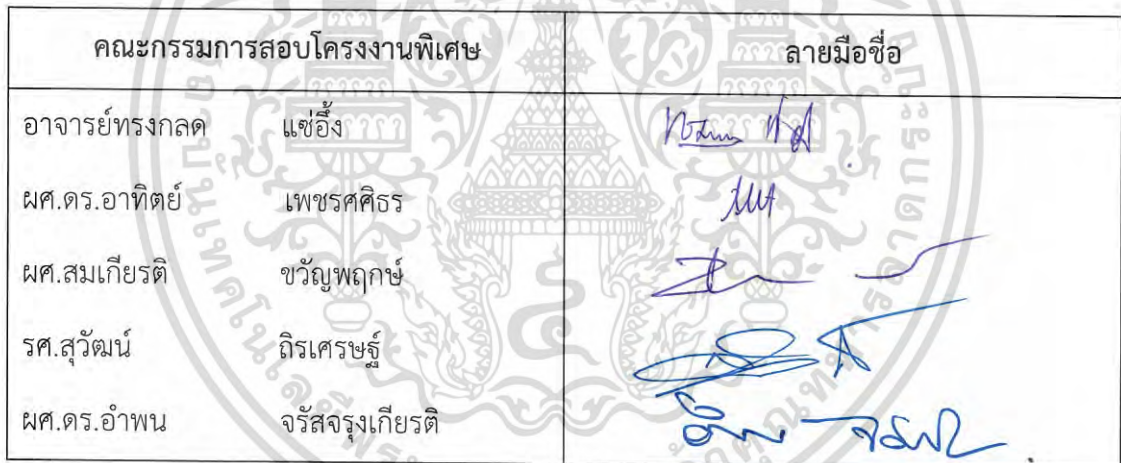 คณะกรรมการสอบโครงงานพิเศษ ลายมือชื่อ
อาจารย์ทรงกลด แซ่อึ้ง
ผศ.ดร.อาทิตย์ เพชรศศิธร
ผศ.สมเกียรติ ขวัญพฤกษ์
รศ.สุวัฒน์ ถิรเศรษฐ์
ผศ.ดร.อำพน จรัสจรุงเกียรติ